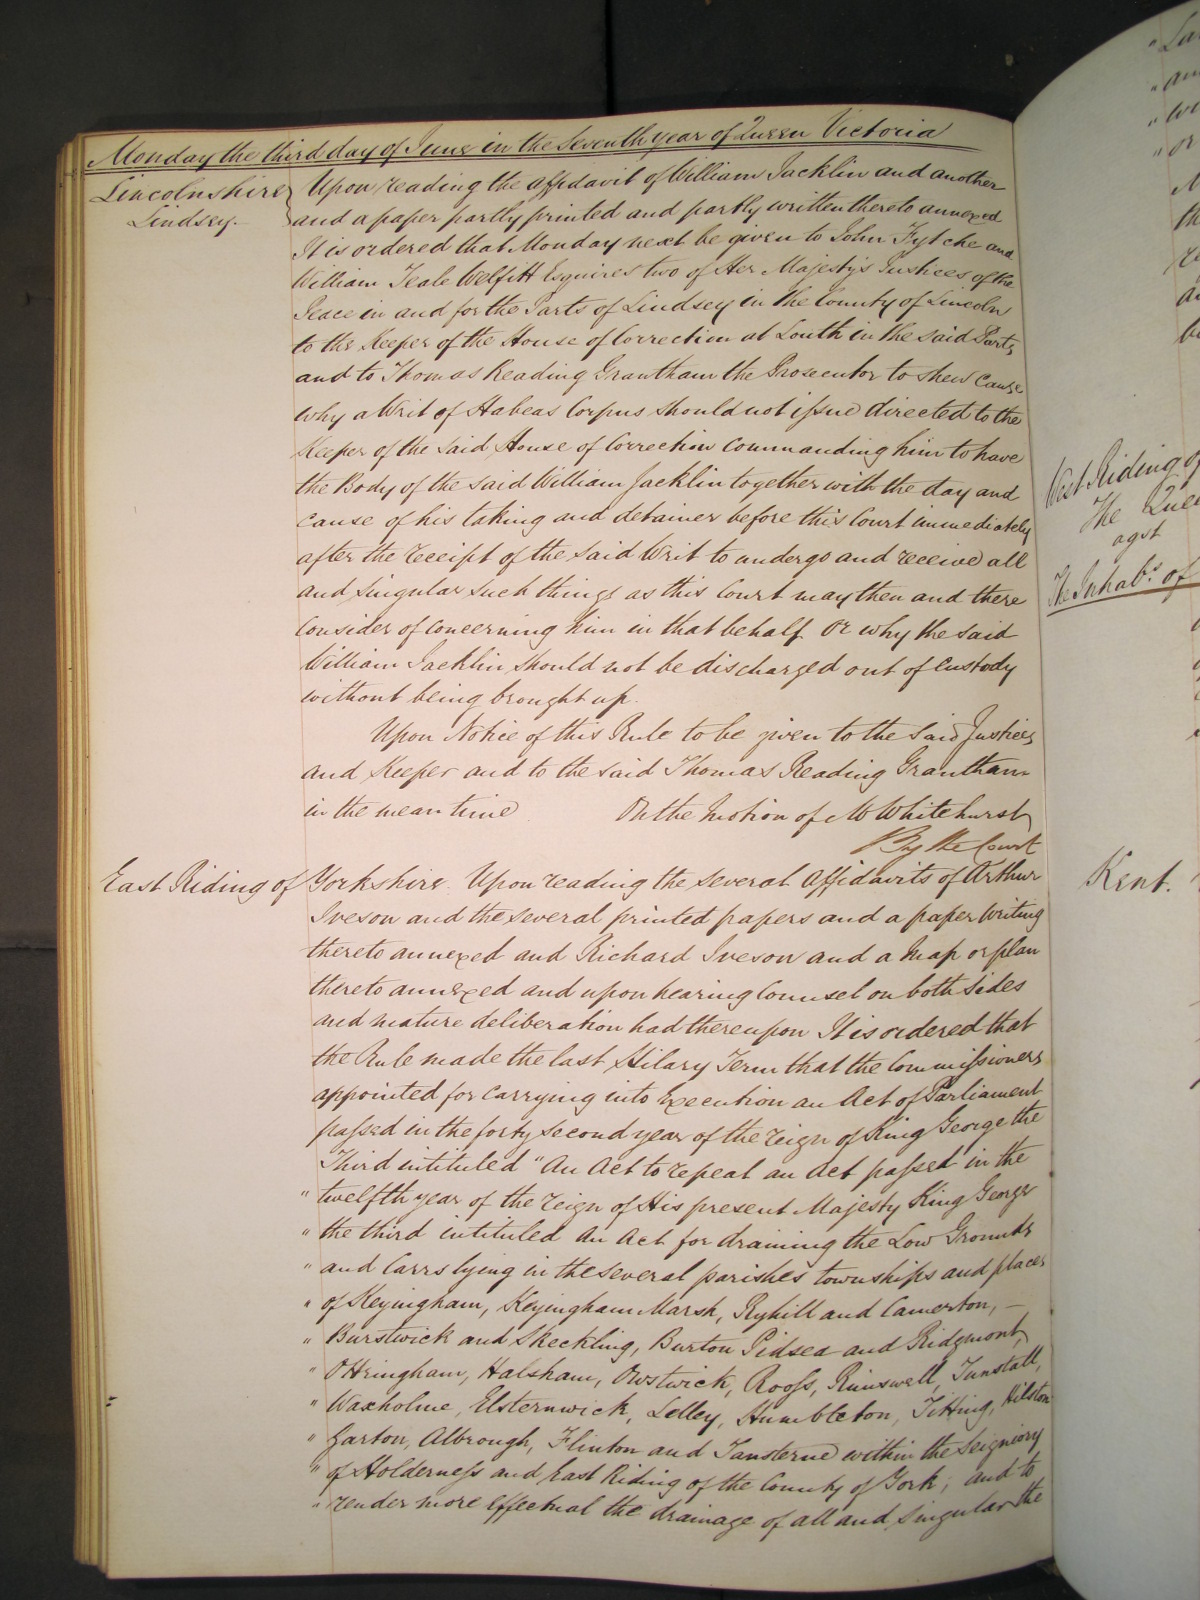 Monday the third day of June in the seventh year of Queen Victoria
Lincolnshire
Lindsey.
Upon reading the affidavit of William Jacklin and another
and a paper partly printed and partly written thereto annexed
It is ordered that Monday next be given to John Fytche and
William Teale Welfitt Esquires two of Her Majesty's Justices of the
Peace in and for the Parts of Lindsey in the County of Lincoln
to the Keeper of the House of Correction at Louth in the said Parts
and to Thomas Reading Grantham the Prosecutor to shew cause
why a Writ of Habeas Corpus should not issue directed to the
Keeper of the said House of Correction commanding him to have
the Body of the said William Jacklin together with the day and
cause of his taking and detainer before this Court immediately
after the receipt of the said Writ to undergo and receive all
and singular such things as this Court may then and there
consider of concerning him in that behalf Or why the said
William Jacklin should not be discharged out of Custody
without being brought up.
Upon Notice of this Rule to be given to the said Justices
and Keeper and to the said Thomas Reading Grantham
in the mean time On the Motion of Mr Whitehurst
By the Court
East Riding of Yorkshire. Upon reading the several Affidavits of Arthur
Iveson and the several printed papers and a paper Writing
thereto annexed and Richard Iveson and a Map or plan
thereto annexed and upon hearing Counsel on both sides
and mature deliberation had thereupon It is ordered that
the Rule made the last Hilary Term that the Commissioners
appointed for carrying into Execution an Act of Parliament
passed in the forty second year of the reign of King George the
Third intituled "An Act to repeal an Act passed in the
" twelfth year of the reign of His present Majesty King George
" the third intituled An Act for draining the Low Grounds
" and Carrs lying in the several parishes townships and places
" of Keyingham, Keyingham Marsh, Ryhill and Camerton, —
" Burstwick and Skeckling, Burton Pidsea and Ridgmont,
" Ottringham, Halsham, Owstwick, Rooss, Rinswell, Tunstall,
" Waxholme, Elsternwick, Lelley, Humbleton, Fitting, Hilston
" Garton, Albrough, Flinton and Tansterne within the Seigniory
" of Holderness and East Riding of the County of York; and to
" render more effectual the drainage of all and singular the
West Riding of
The Quee
agst
The Inhabs. of
Kent.